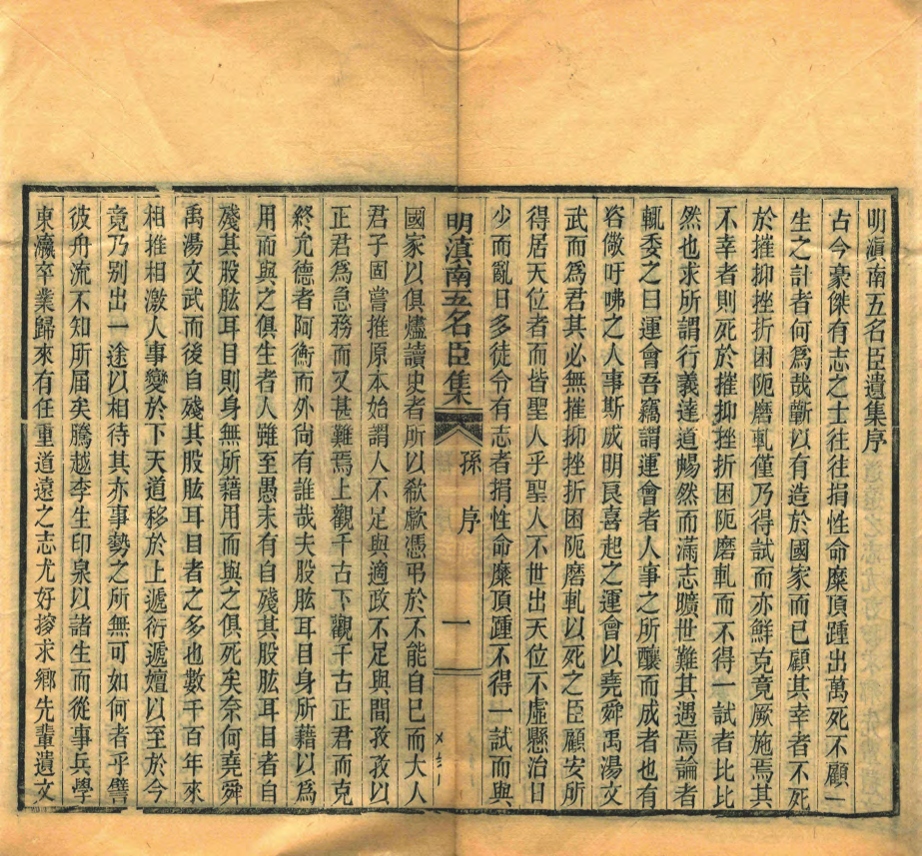 明滇南五名臣遺集序
古今豪傑有志之士往往捐性命糜頂踵出萬死不顧一
生之計者何爲哉蘄以有造於國家而已顧其幸者不死
於摧抑挫折困阨磨軋僅乃得試而亦鮮克竟厥施焉其
不幸者則死於摧抑挫折困阨磨軋而不得一試者比比
然也求所謂行義達道暢然而滿志曠世難其遇焉論者
輒委之曰運會吾竊謂運會者人事之所釀而成者也有
咨儆吁咈之人事斯成明良喜起之運會以堯舜禹湯文
武而爲君其必無摧抑挫折困阨磨軋以死之臣顧安所
得居天位者而皆聖人乎聖人不世出天位不虛懸治日
少而亂日多徒令有志者捐性命糜頂踵不得一試而與
明滇南五名臣集
孫序
一
國家以俱燼讀史者所以欷歔憑弔於不能自已而大人
君子固嘗推原本始謂人不足與適政不足與間孜孜以
正君爲急務而又甚難焉上觀千古下觀千古正君而克
終允德者阿衡而外尙有誰哉夫股肱耳目身所藉以爲
用而與之俱生者人雖至愚未有自殘其股肱耳目者自
殘其股肱耳目則身無所藉用而與之俱死矣奈何堯舜
禹湯文武而後自殘其股肱耳目者之多也數千百年來
相推相激人事變於下天道移於上遞衍遞嬗以至於今
竟乃別出一途以相待其亦事勢之所無可如何者乎譬
彼舟流不知所屆矣騰越李生印泉以諸生而從事兵學
東瀛卒業歸來有任重道遠之志尤好搜求鄉先輩遺文